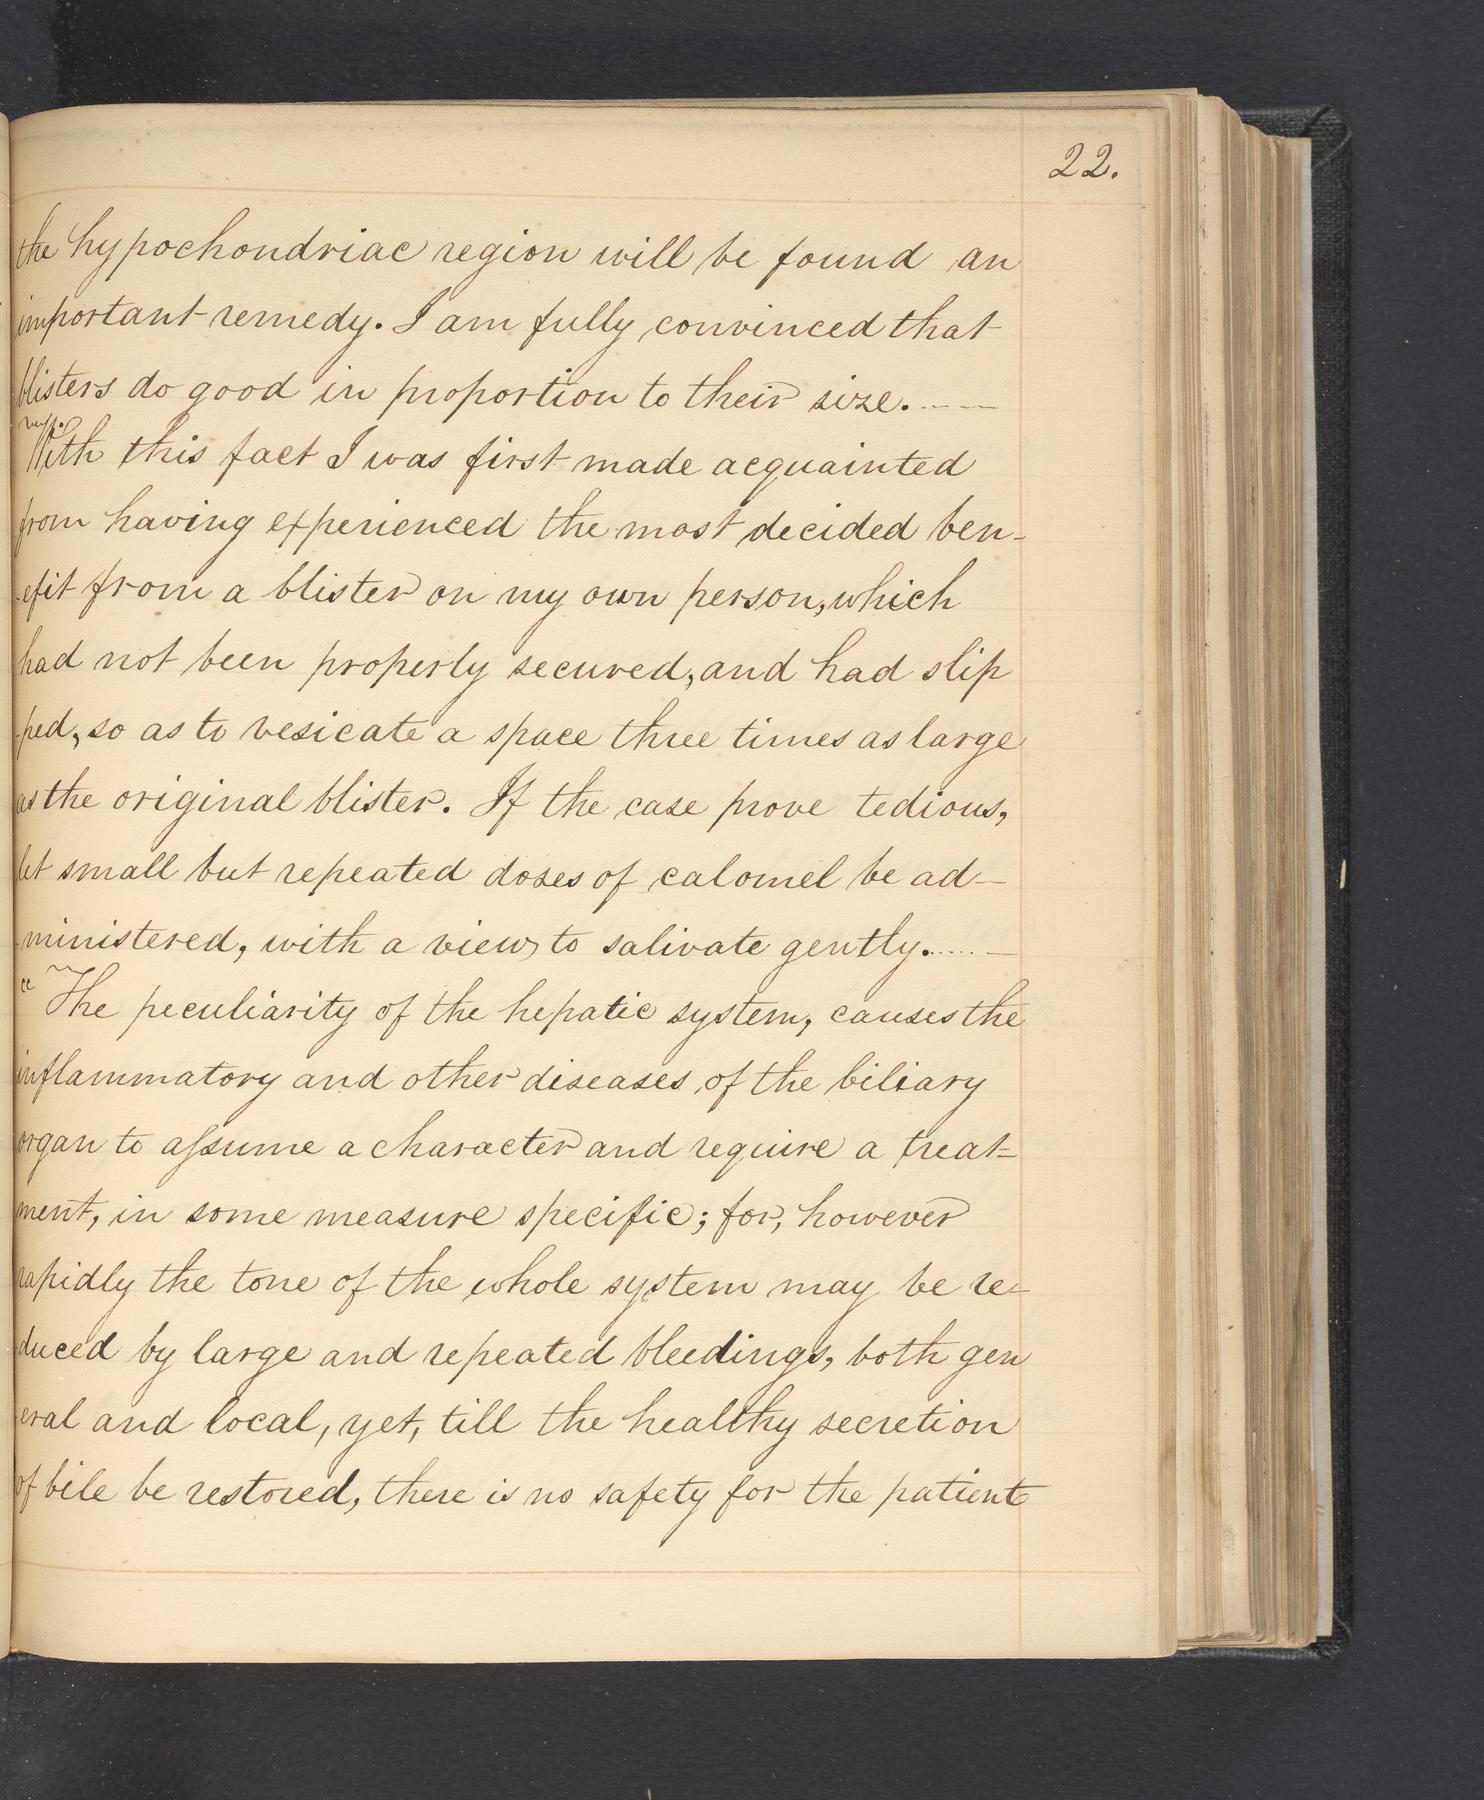 22.
the hypochondriac region will be found an
important remedy. I am fully convinced that
blisters do good in proportion to their size. — —
With this fact I was first made acquainted
from having experienced the most decided ben-
-efit from a blister on my own person, which
had not been properly secured, and had slip
-ped, so as to vesicate a space three times as large
as the original blister. If the case prove tedious,
let small but repeated doses of calomel be ad-
-ministered, with a view to salivate gently......—
"The peculiarity of the hepatic system, causes the
inflammatory and other diseases of the biliary
organ to aſsume a character and require a treat=
ment, in some measure specific; for, however
rapidly the tone of the whole system may be re-
duced by large and repeated bleedings, both gen
eral and local, yet, till the healthy secretion
of bile be restored, there is no safety for the patient